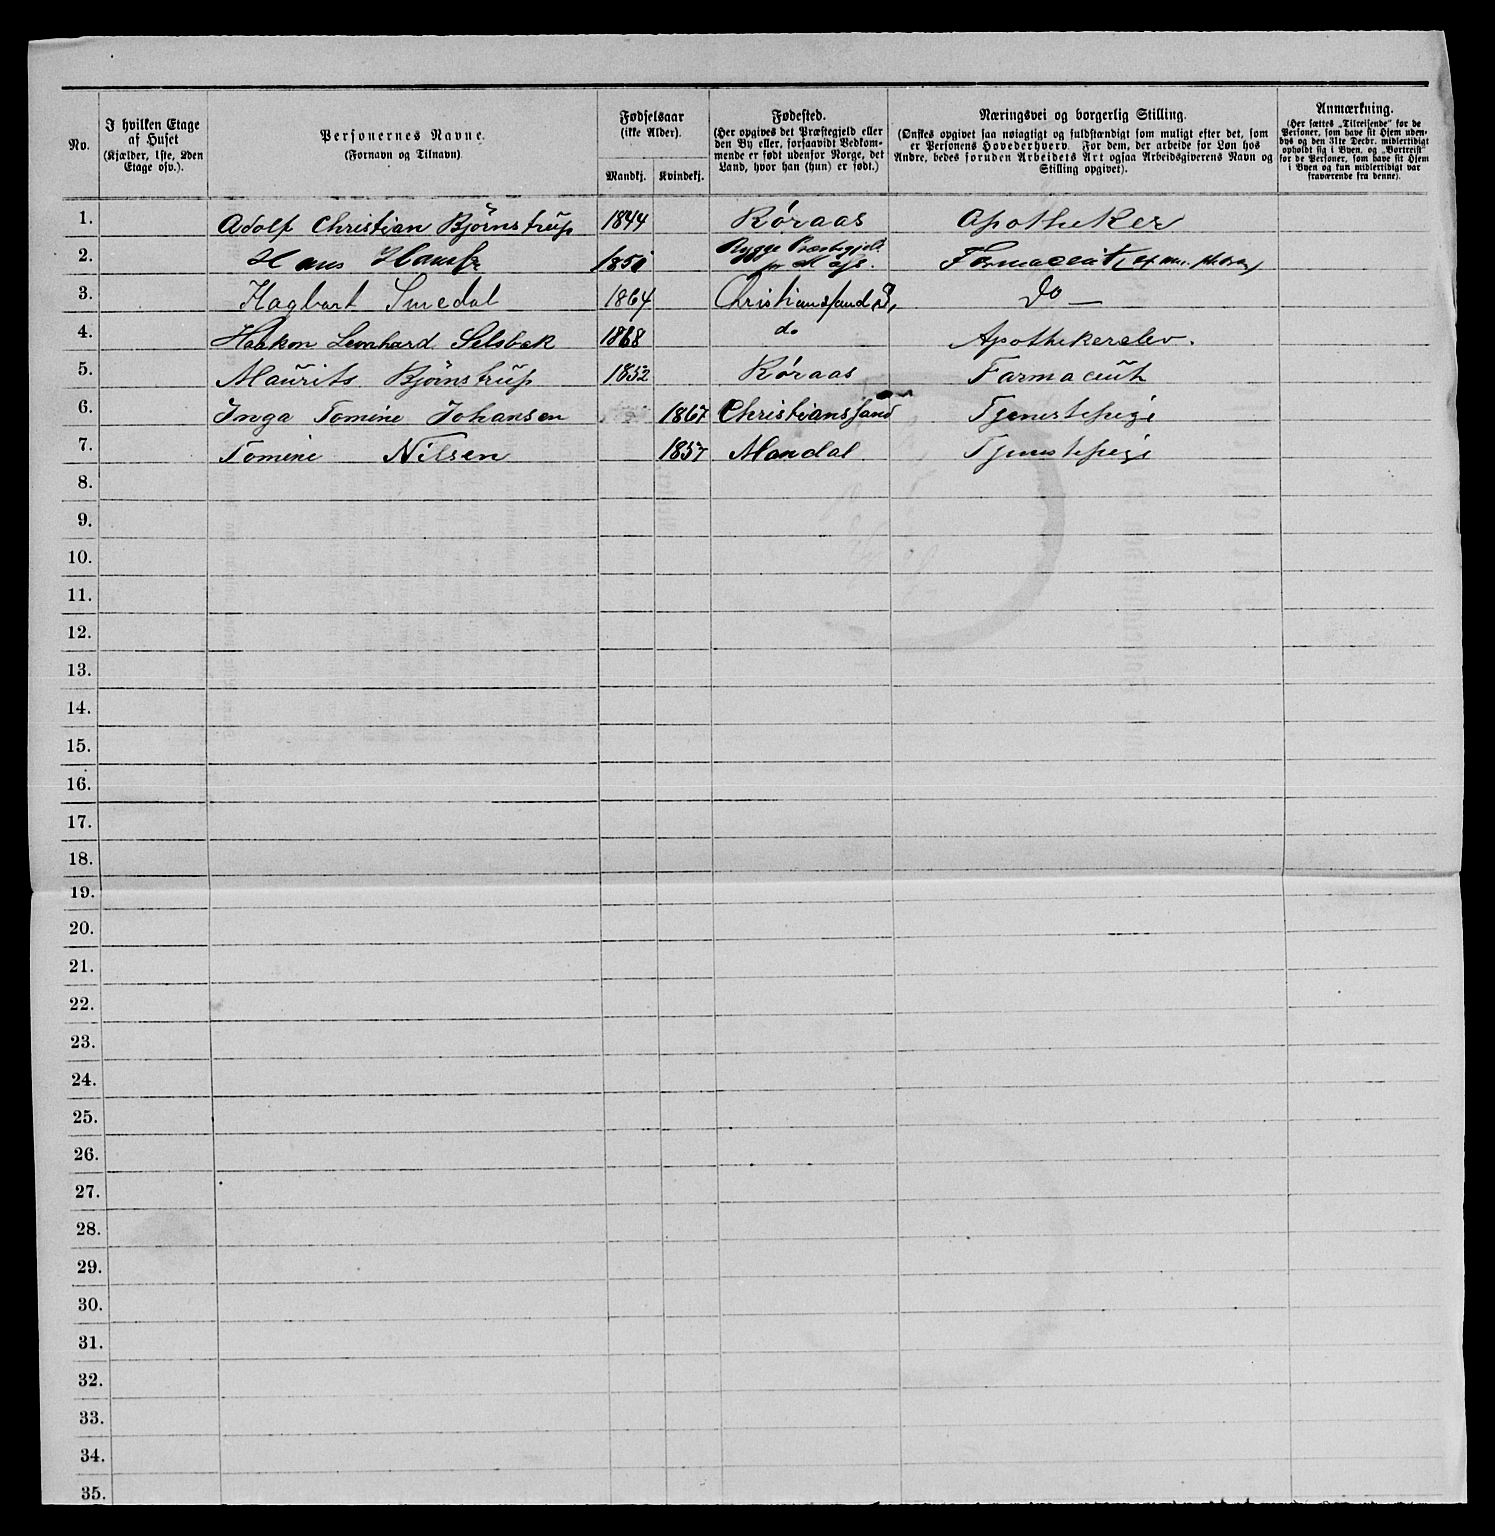 No.
I hvilken Etage
af Huset
(Kjælder, 1ste, 2den
Etage osv.).
Personernes Navne.
(Fornavn og Tilnavn)
Fødselsaar
(ikke Alder).
Mandkj. Kvindekj.
Fødested.
(Her opgives det Præstegjeld eller
den By eller, forsaavidt Vedkom-
mende er født udenfor Norge, det
Land, hvor han (hun) er født.)
Næringsvei og borgerlig Stilling.
(Ønskes opgivet saa nøiagtigt og fuldstændigt som muligt efter det, som
er Personens Hovederhverv. For dem, der arbeide for Løn hos
Andre, bedes foruden Arbeidets Art ogsaa Arbeidsgiverens Navn og
Stilling opgivet).
Anmærkning.
(Her sættes „Tilreisende“ for de
Personer, som have sit Hjem uden-
bys og den 31te Decbr. midlertidigt
opholdt sig i Byen, og „Bortreist“
for de Personer, som have sit Hjem
i Byen og kun midlertidigt var
fraværende fra denne).
1. Adolf Christian Bjørnstrup 1844 Røraas Apotheker
2. Hans 1851 Rygge Præstegjeld Farmaceut
3. Hagbart Smedal 1864 Christianssand Do
4. Haakon Leonhard Selsbek 1868 do Apothekerelev.
5. Maurits Bjørnstrup 1852 Røraas Farmaceut
6. Inga Tomine Johansen 1867 Christianssand Tjenestepige
7. Tomine Nilsen 1857 Mandal Tjenestepige
8.
9.
10.
11.
12.
13.
14.
15.
16.
17.
18.
19.
20.
21.
22.
23.
24.
25.
26.
27.
28.
29.
30.
31.
32.
33.
34.
35.